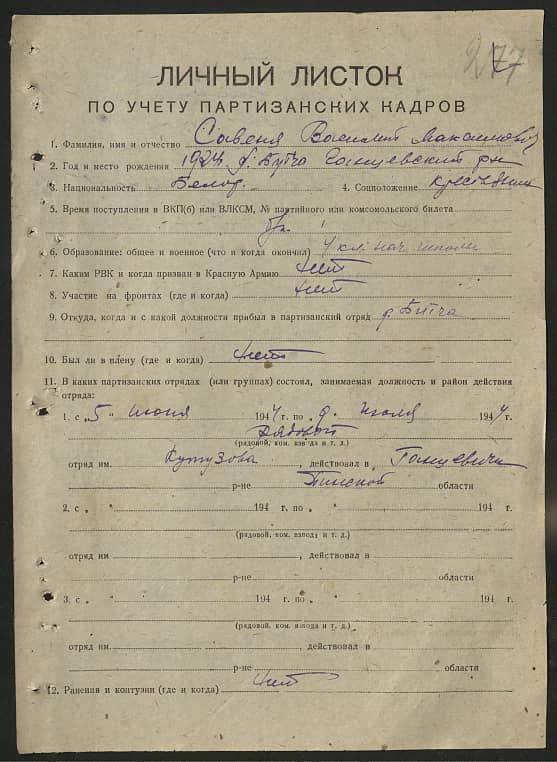 277
ЛИЧНЫЙ ЛИСТОК
ПО УЧЕТУ ПАРТИЗАНСКИХ КАДРОВ
1. Фамилия, имя и отчество Савеня Василий Максимович
2. Год и место рождения 1924 д. Бутча Ганцевский рн
3. Национальность Белор. 4. Соцположение крестьянин
5. Время поступления в ВКП(б) или ВЛКСМ, № партийного или комсомольского билета
6. Образование: общее и военное (что и когда окончил) 4 кл. нач. школы
7. Каким РВК и когда призван в Красную Армию нет
8. Участие на фронтах (где и когда) нет
9. Откуда, когда и с какой должности прибыл в партизанский отряд д. Бутча
10. Был ли в плену (где и когда) нет
11. В каких партизанских отрядах (или группах) состоял, занимаемая должность и район действия
отряда:
1. с „5" июня 1944 г. по июля 1944 г.
Рядовой
(рядовой, ком. взвода и т. д.)
отряд им. Кутузова, действовал в Ганцевичи
р-не Пинской области
2. с „ " 194 г. по „ " 194 г.
(рядовой, ком. взвода и т. д.)
отряд им , действовал в
р-не области
3. с „ " 194 г. по „ " 194 г.
(рядовой, ком. взвода и т. д.)
отряд им , действовал в
р-не области
12. Ранения и контузии (где и когда) нет